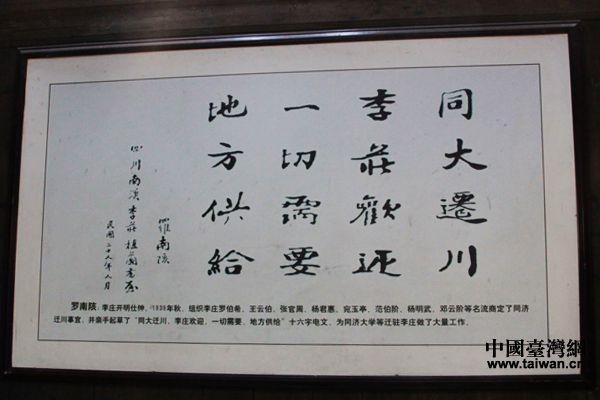 同大遷川
李莊歡迎
一切需要
地方供給
羅南陔
四川南溪李莊植蘭書屋
民國二十八年八月
罗南陔：李庄开明仕绅，1939年秋，组织李庄罗伯希、王云伯、张官周、杨君惠、宛玉亭、范伯阶、杨明武、邓云阶等名流商定了同济
迁川事宜，并亲手起草了“同大迁川、李庄欢迎，一切需要、地方供给”十六字电文，为同济大学等迁驻李庄做了大量工作。
中國臺灣網
www.taiwan.cn